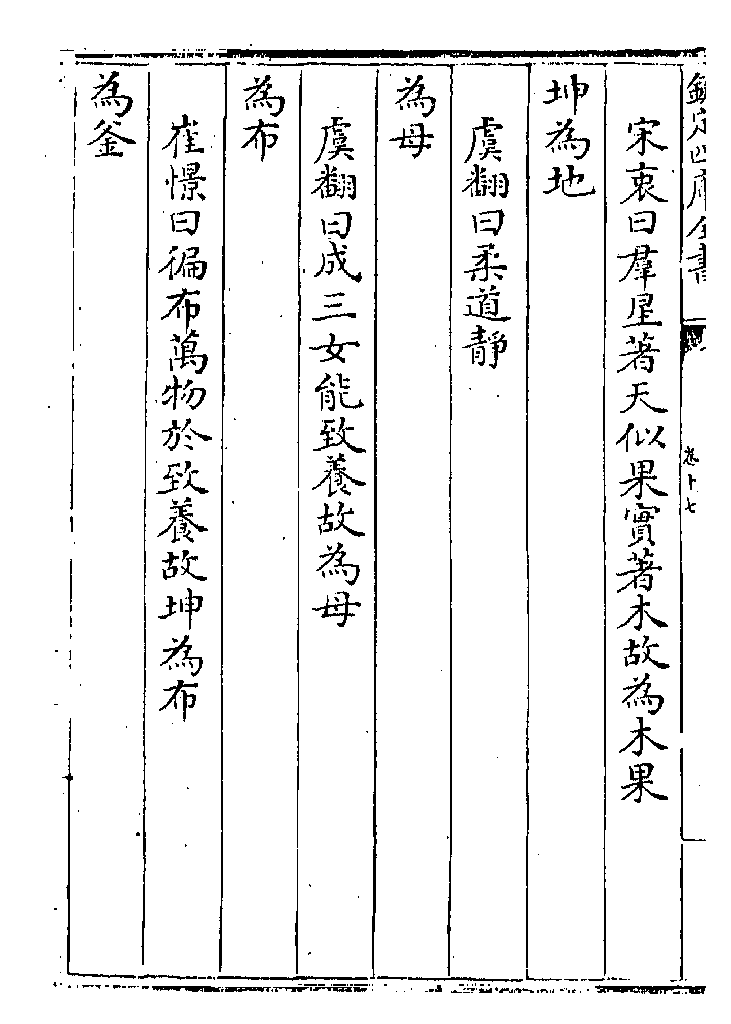 欽定四庫全書
卷十七
宋衷曰羣星著天似果實著木故為木果
坤為地
虞翻曰柔道靜
為母
虞翻曰成三女能致養故為母
為布
崔憬曰徧布萬物於致養故坤為布
為釜